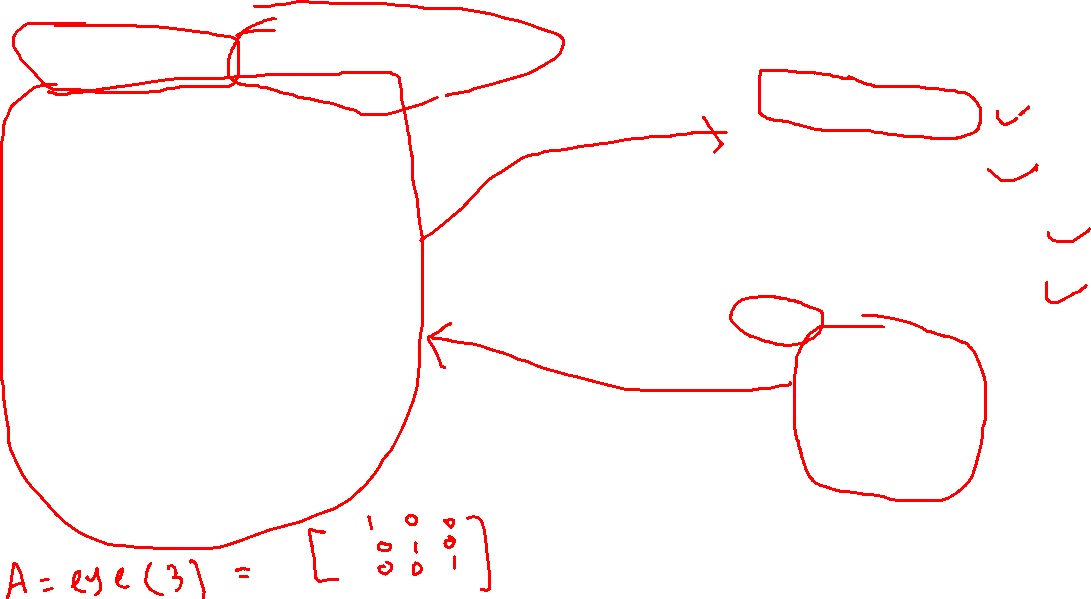 A = eye(3) = [ 1 0 0
0 1 0
0 0 1 ]